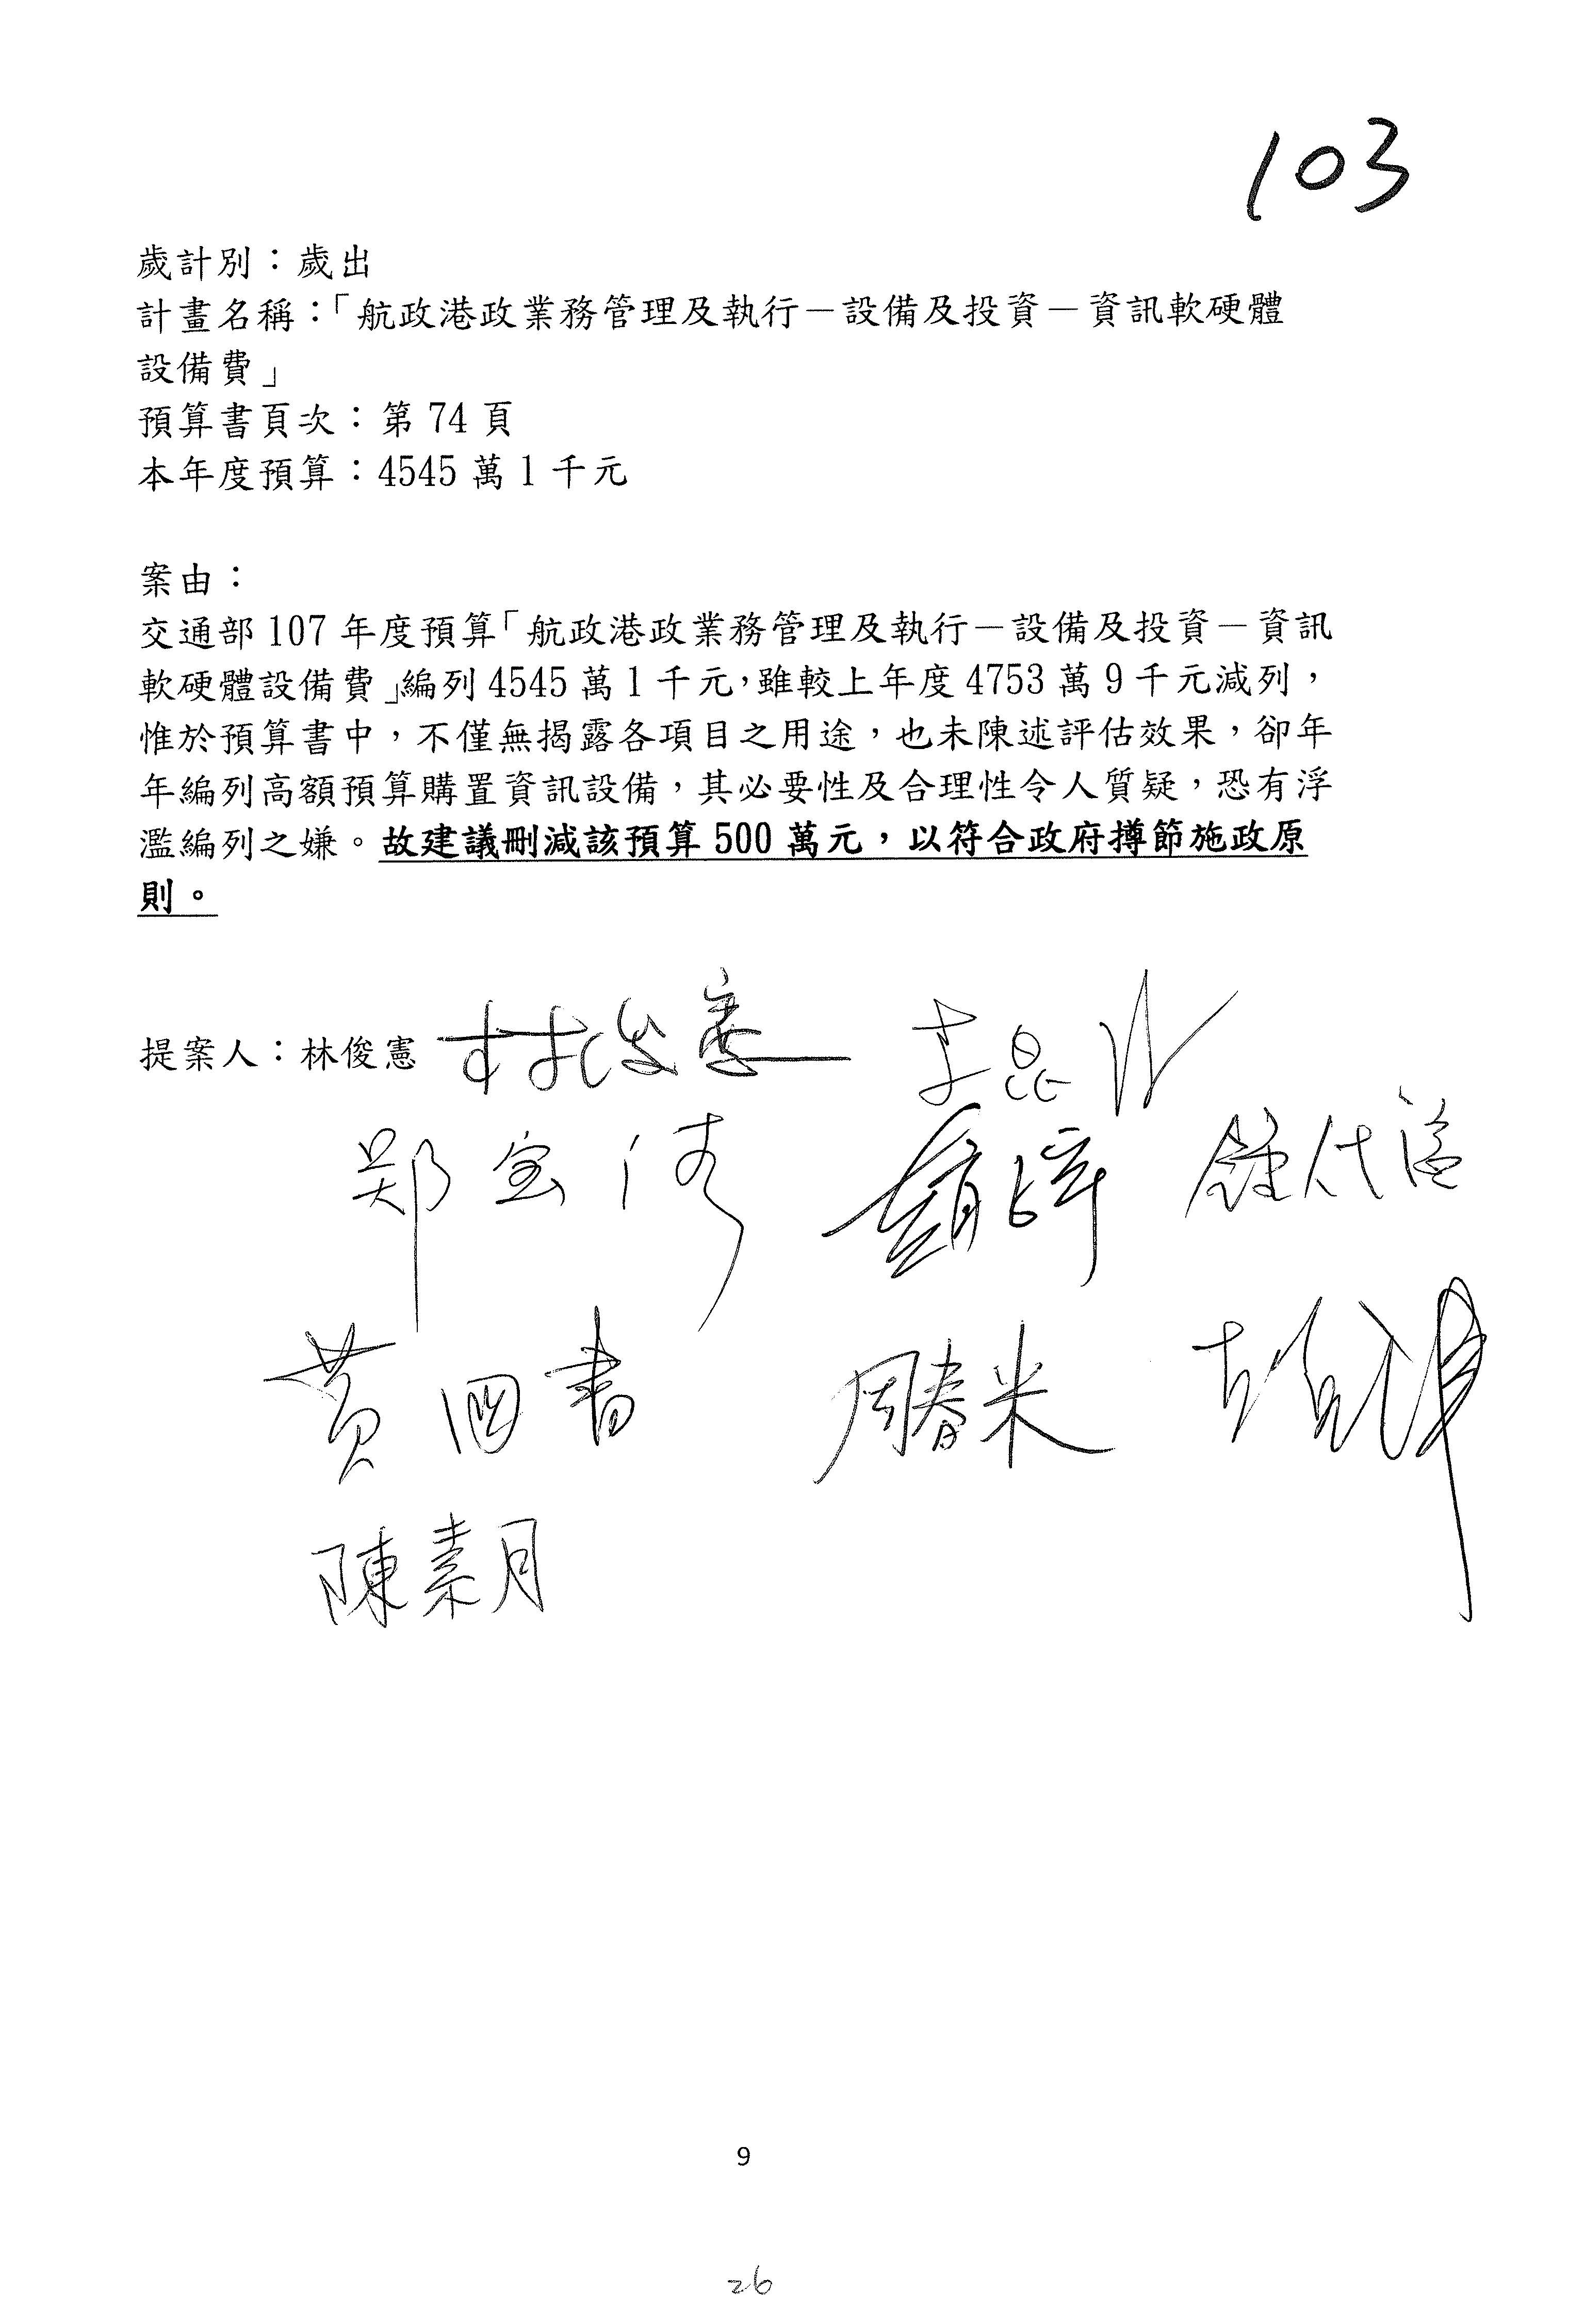 103
歲計別：歲出
計畫名稱：「航政港政業務管理及執行－設備及投資－資訊軟硬體
設備費」
預算書頁次：第 74 頁
本年度預算：4545 萬 1 千元
案由：
交通部 107 年度預算「航政港政業務管理及執行－設備及投資－資訊
軟硬體設備費」編列 4545 萬 1 千元，雖較上年度 4753 萬 9 千元減列，
惟於預算書中，不僅無揭露各項目之用途，也未陳述評估效果，卻年
年編列高額預算購置資訊設備，其必要性及合理性令人質疑，恐有浮
濫編列之嫌。故建議刪減該預算 500 萬元，以符合政府撙節施政原
則。
提案人：林俊憲 林俊憲 李昆泽
郑宝清 鍾佳滨
黃国書 周春米
陳素月
9
26